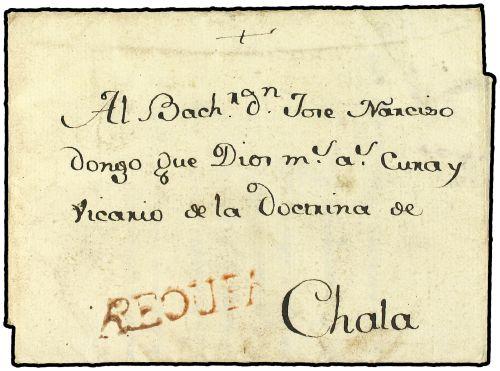 +
Al Bach.r dn Jose Narciso
dongo que Dios ms as Cura y
Vicario de la Doctrina de
Chala